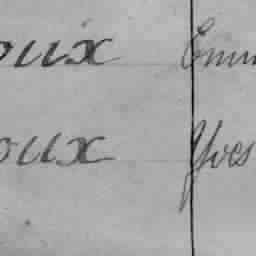 oux Emm
oux Yves